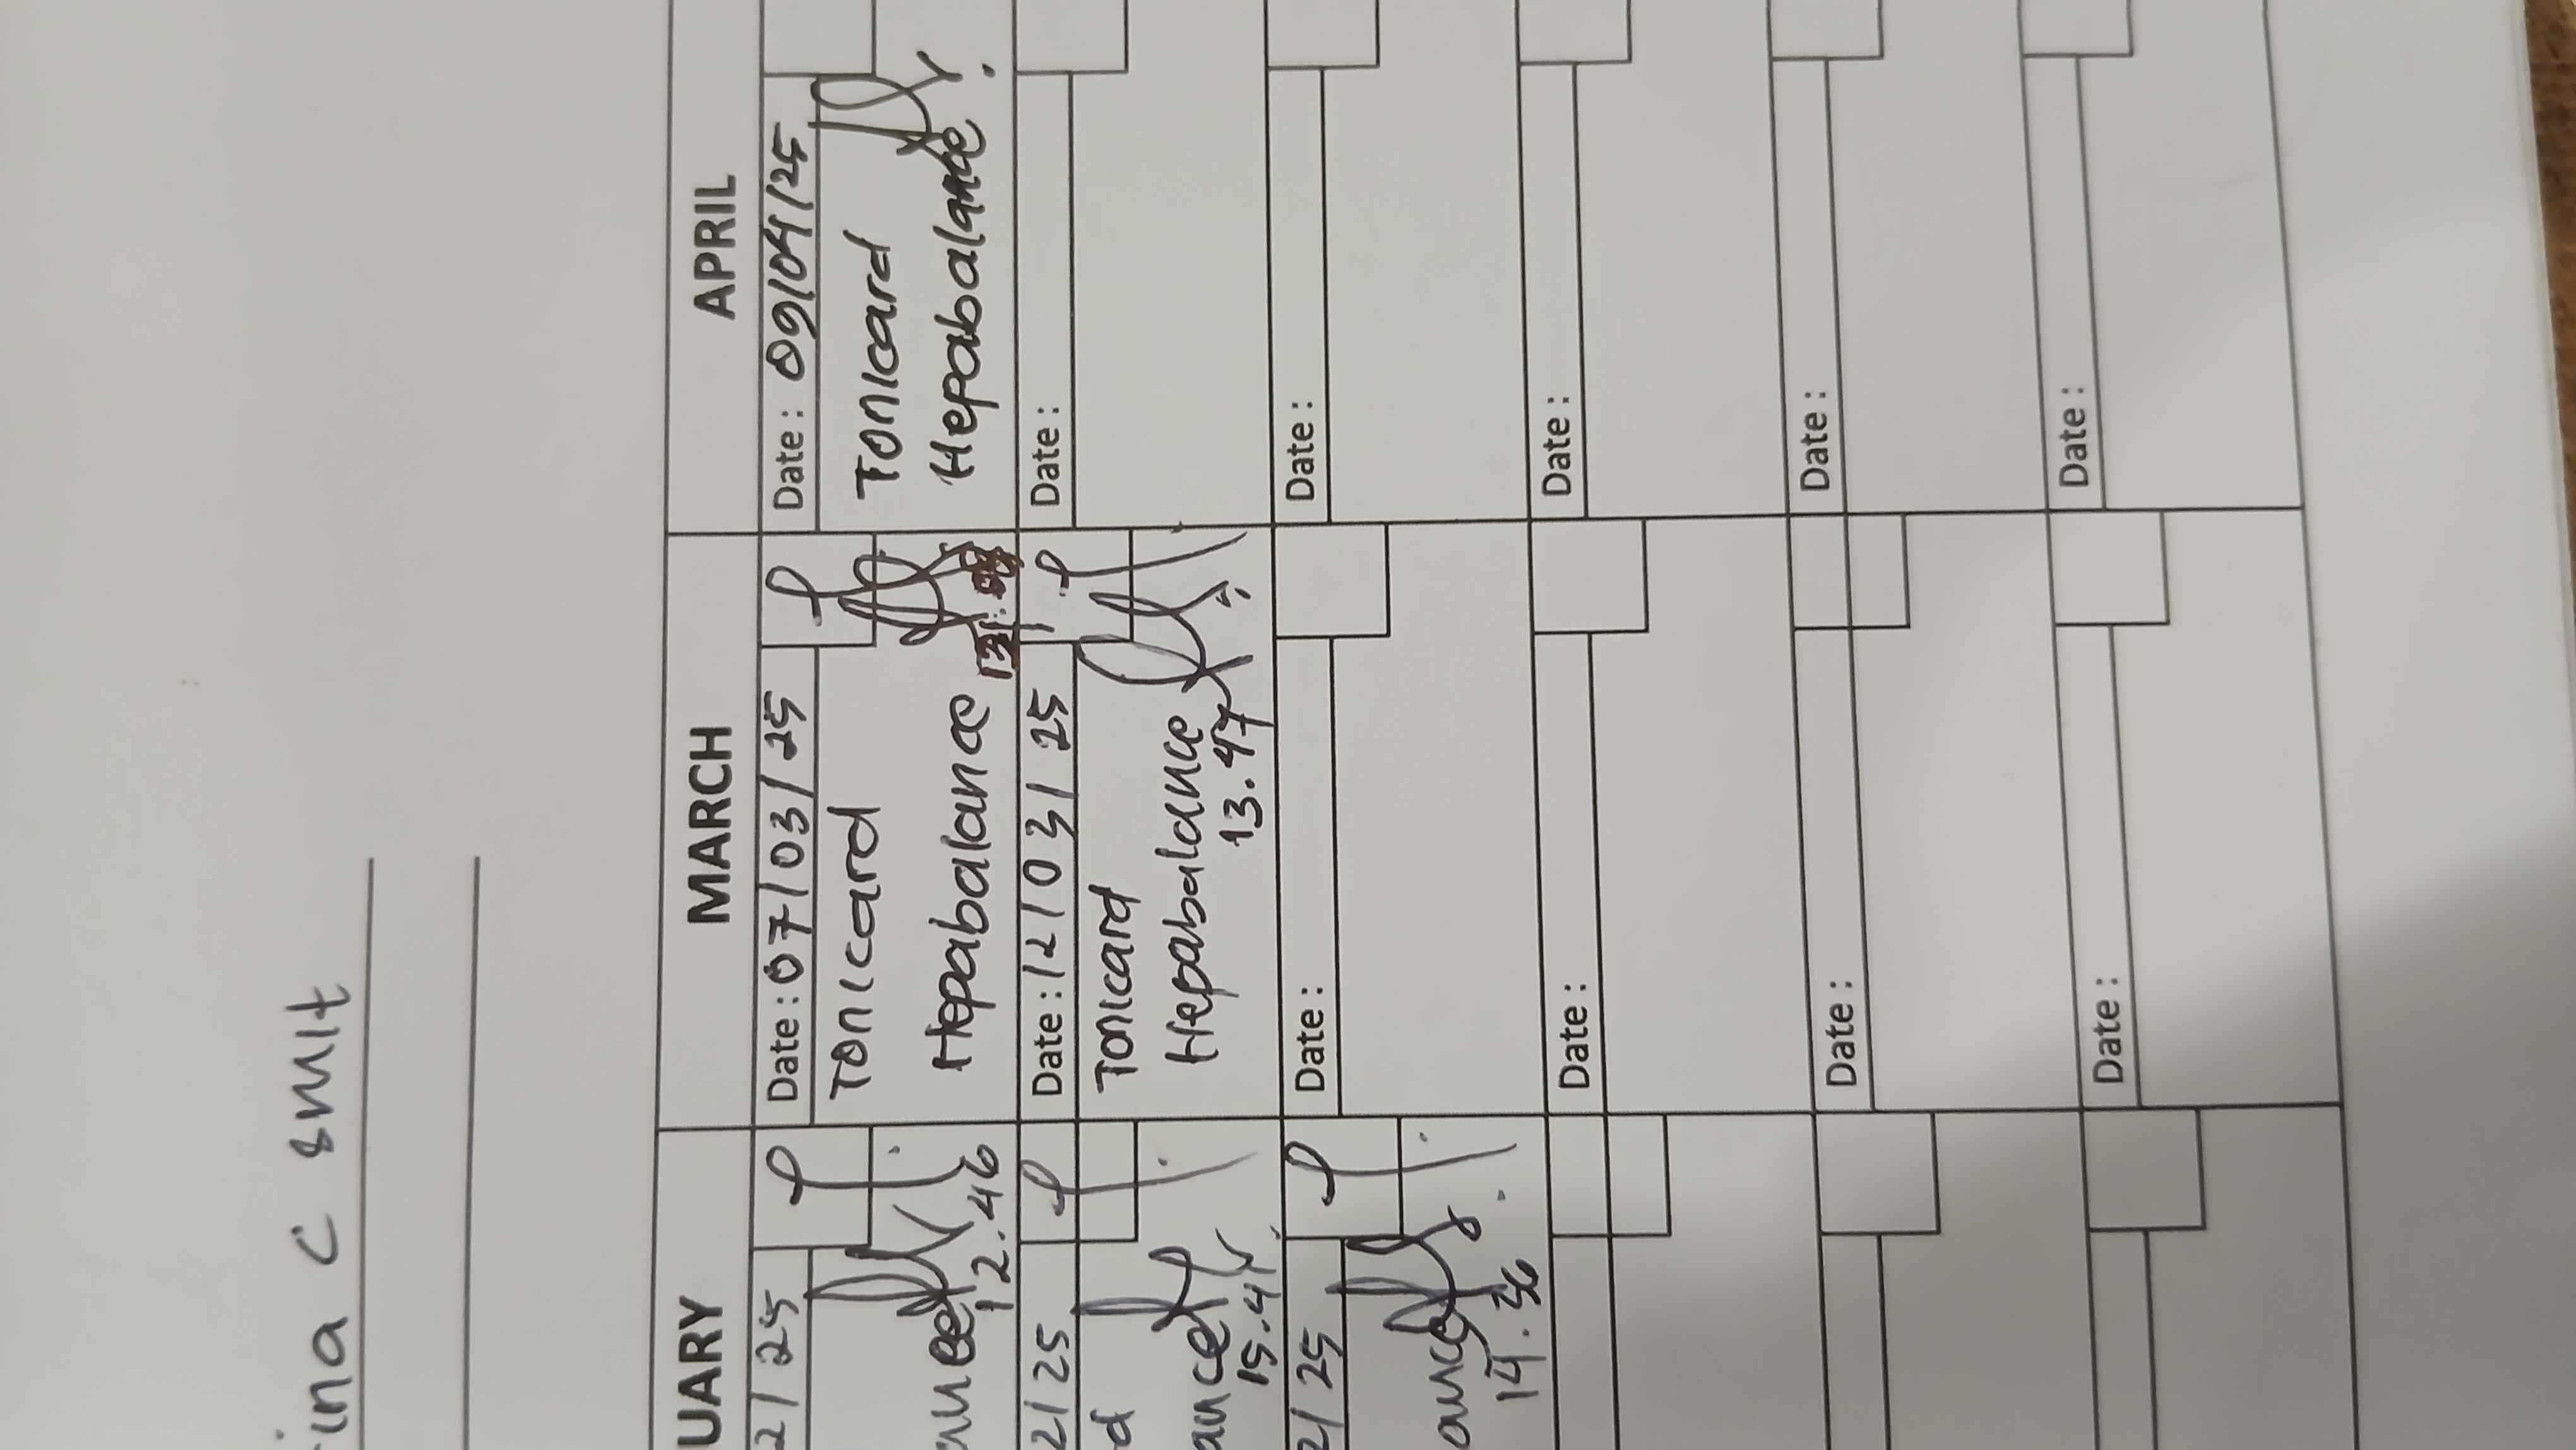 ina C smit
UARY
2/25
12.46
2/25
d
15.4
2/25
14.36
MARCH
Date: 07/03/25
Tonicard
Hepabalance
13
Date: 12/03/25
Tonicard
Hepabalance
13.47
Date:
Date:
Date:
Date:
APRIL
Date: 09/04/25
Tonicard
Hepabalance
Date:
Date:
Date:
Date:
Date: